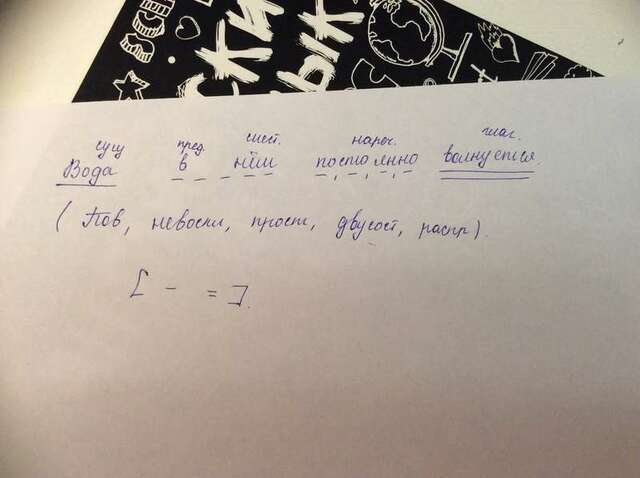 сущ пред. мест. нареч. глаг.
Вода в нём постоянно волнуется.
(Пов, невоскл, прост, двусост, распр).
[ – = ].